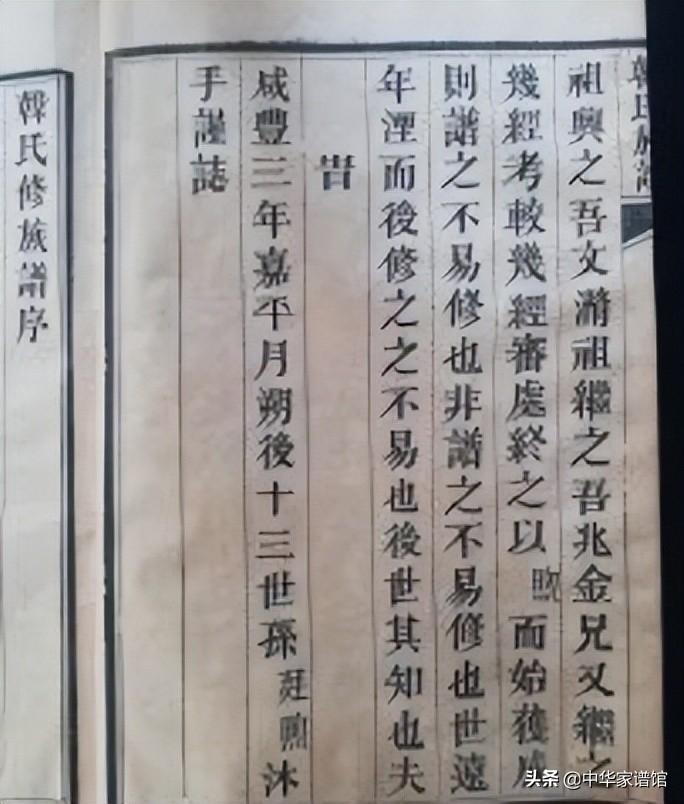 韓氏族譜
祖興之吾文祖繼之吾兆金兄又繼之
幾經考較幾經審處終之以而始獲成
則譜之不易修也非譜之不易修也世遠
年湮而後修之之不易也後世其知也夫
旹
咸豐三年嘉平月朔後十三世孫沐
手謹誌
韓氏修族譜序
头条 @中华家谱馆